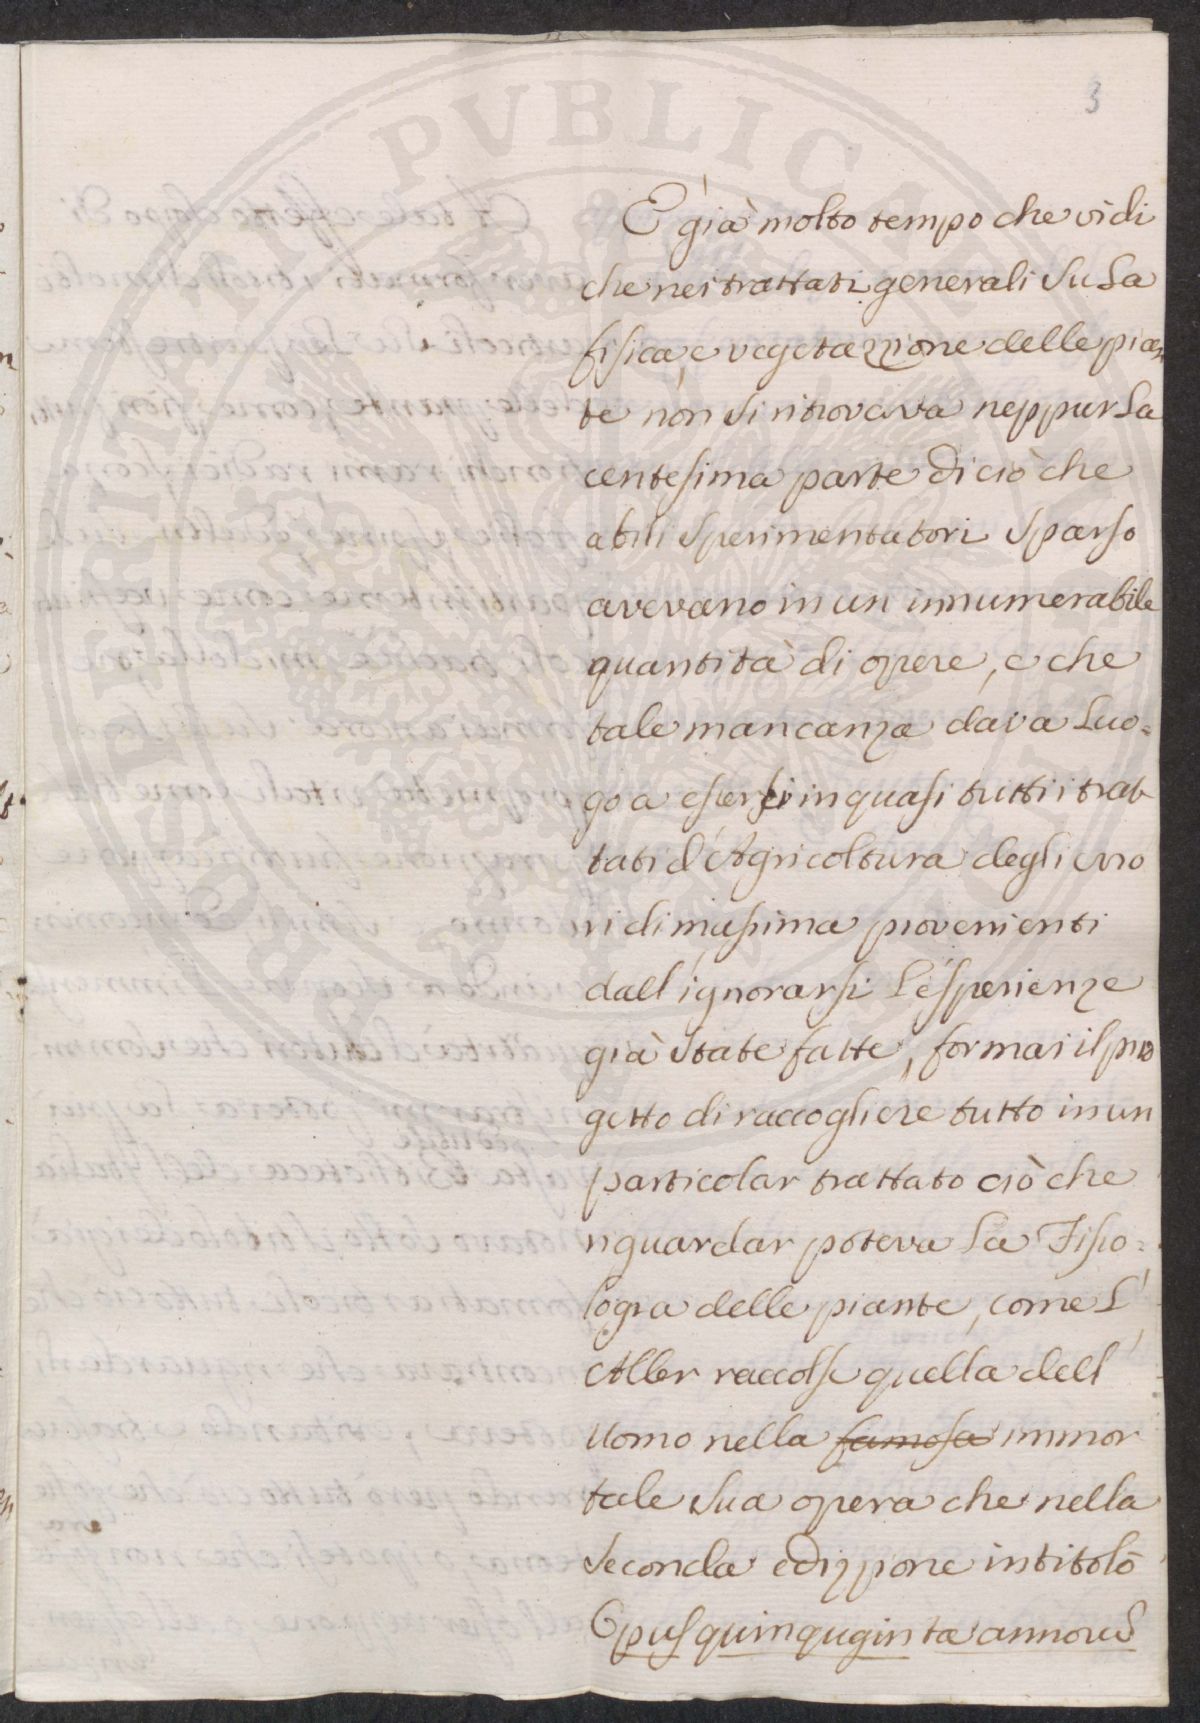 3
È già molto tempo che vidi
che nei trattati generali su la
fisica, e vegetazzione delle pian
te non si ritrovava neppur la
centesima parte di ciò che
abili sperimentatori sparso
avevano in un innumerabile
quantità di opere, e che
tale mancanza dava luo=
go a essersi in quasi tutti i trat
tati d'Agricoltura degli erro
ri di massima provenienti
dall'ignorarsi l'esperienze
già state fatte, formai il pro
getto di raccogliere tutto in un
particolar trattato ciò che
riguardar poteva la Fisio=
logia delle piante, come l'
Aller raccolse quella dell'
uomo nella famosa immor
tale sua opera che nella
seconda edizzione intitolò
Opus quinquginta annorũ